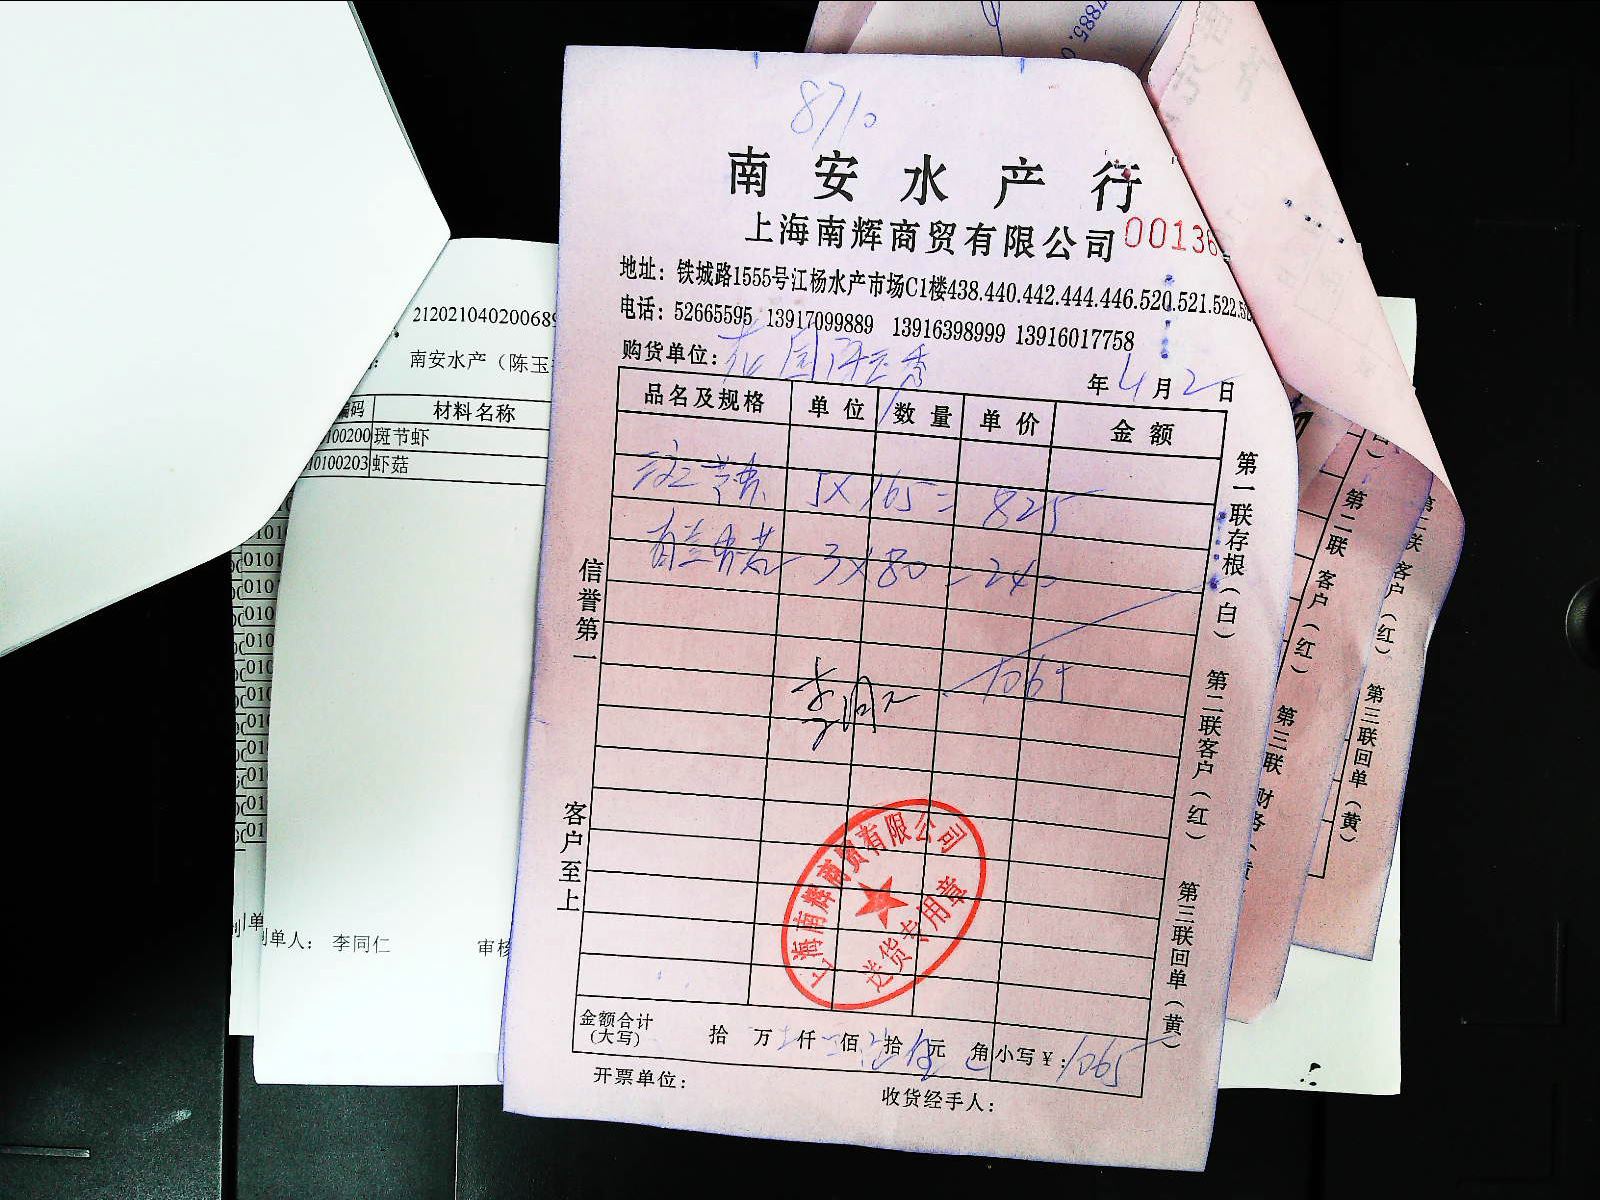 8710
南安水产行
上海南辉商贸有限公司 00136
地址：铁城路1555号江杨水产市场C1楼438.440.442.444.446.520.521.522.52
电话：52665595 13917099889 13916398999 13916017758
购货单位：
年 4 月 2 日
品名及规格 单位 数量 单价 金额
5X165=825
3X80=240
1065
信誉第一
客户至上
第一联存根（白） 第二联客户（红） 第三联回单（黄）
上海南辉商贸有限公司
送货专用章
金额合计（大写） 拾 万 仟 佰 拾 元 角 小写￥：1065
开票单位：
收货经手人：
212021040200689
南安水产（陈玉
编码 材料名称
0100200 斑节虾
0100203 虾菇
制单人： 李同仁 审核
第二联 客户（红） 第三联 财务（黄
第二联 客户（红） 第三联回单（黄）
7885.0